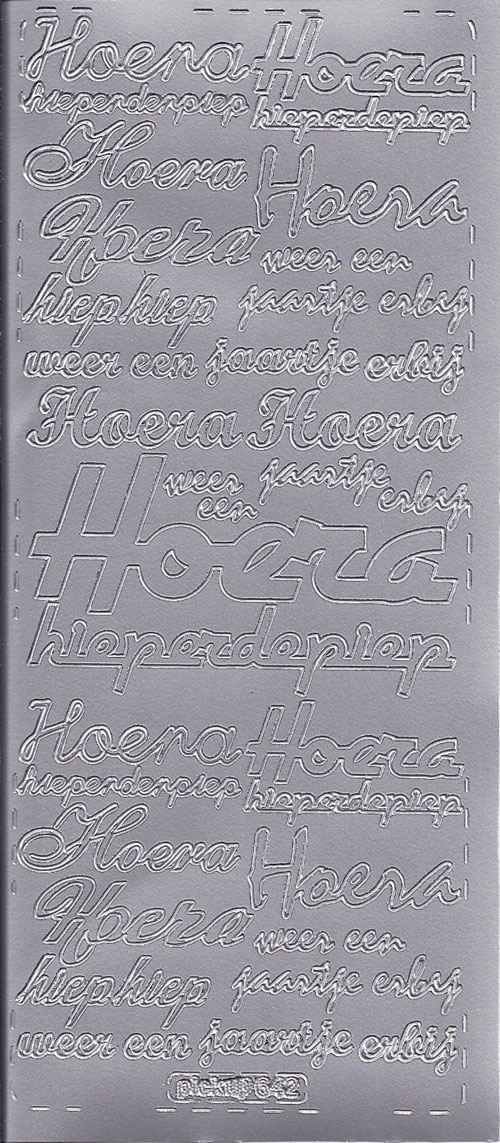 Hoera Hoera
hieperdenpiep hieperdepiep
Hoera Hoera
Hoera
weer een
hiep hiep jaartje erbij
weer een jaartje erbij
Hoera Hoera
weer een jaartje erbij
Hoera
hieperdepiep
Hoera Hoera
hieperdenpiep hieperdepiep
Hoera Hoera
Hoera
weer een
hiep hiep jaartje erbij
weer een jaartje erbij
pickup 642